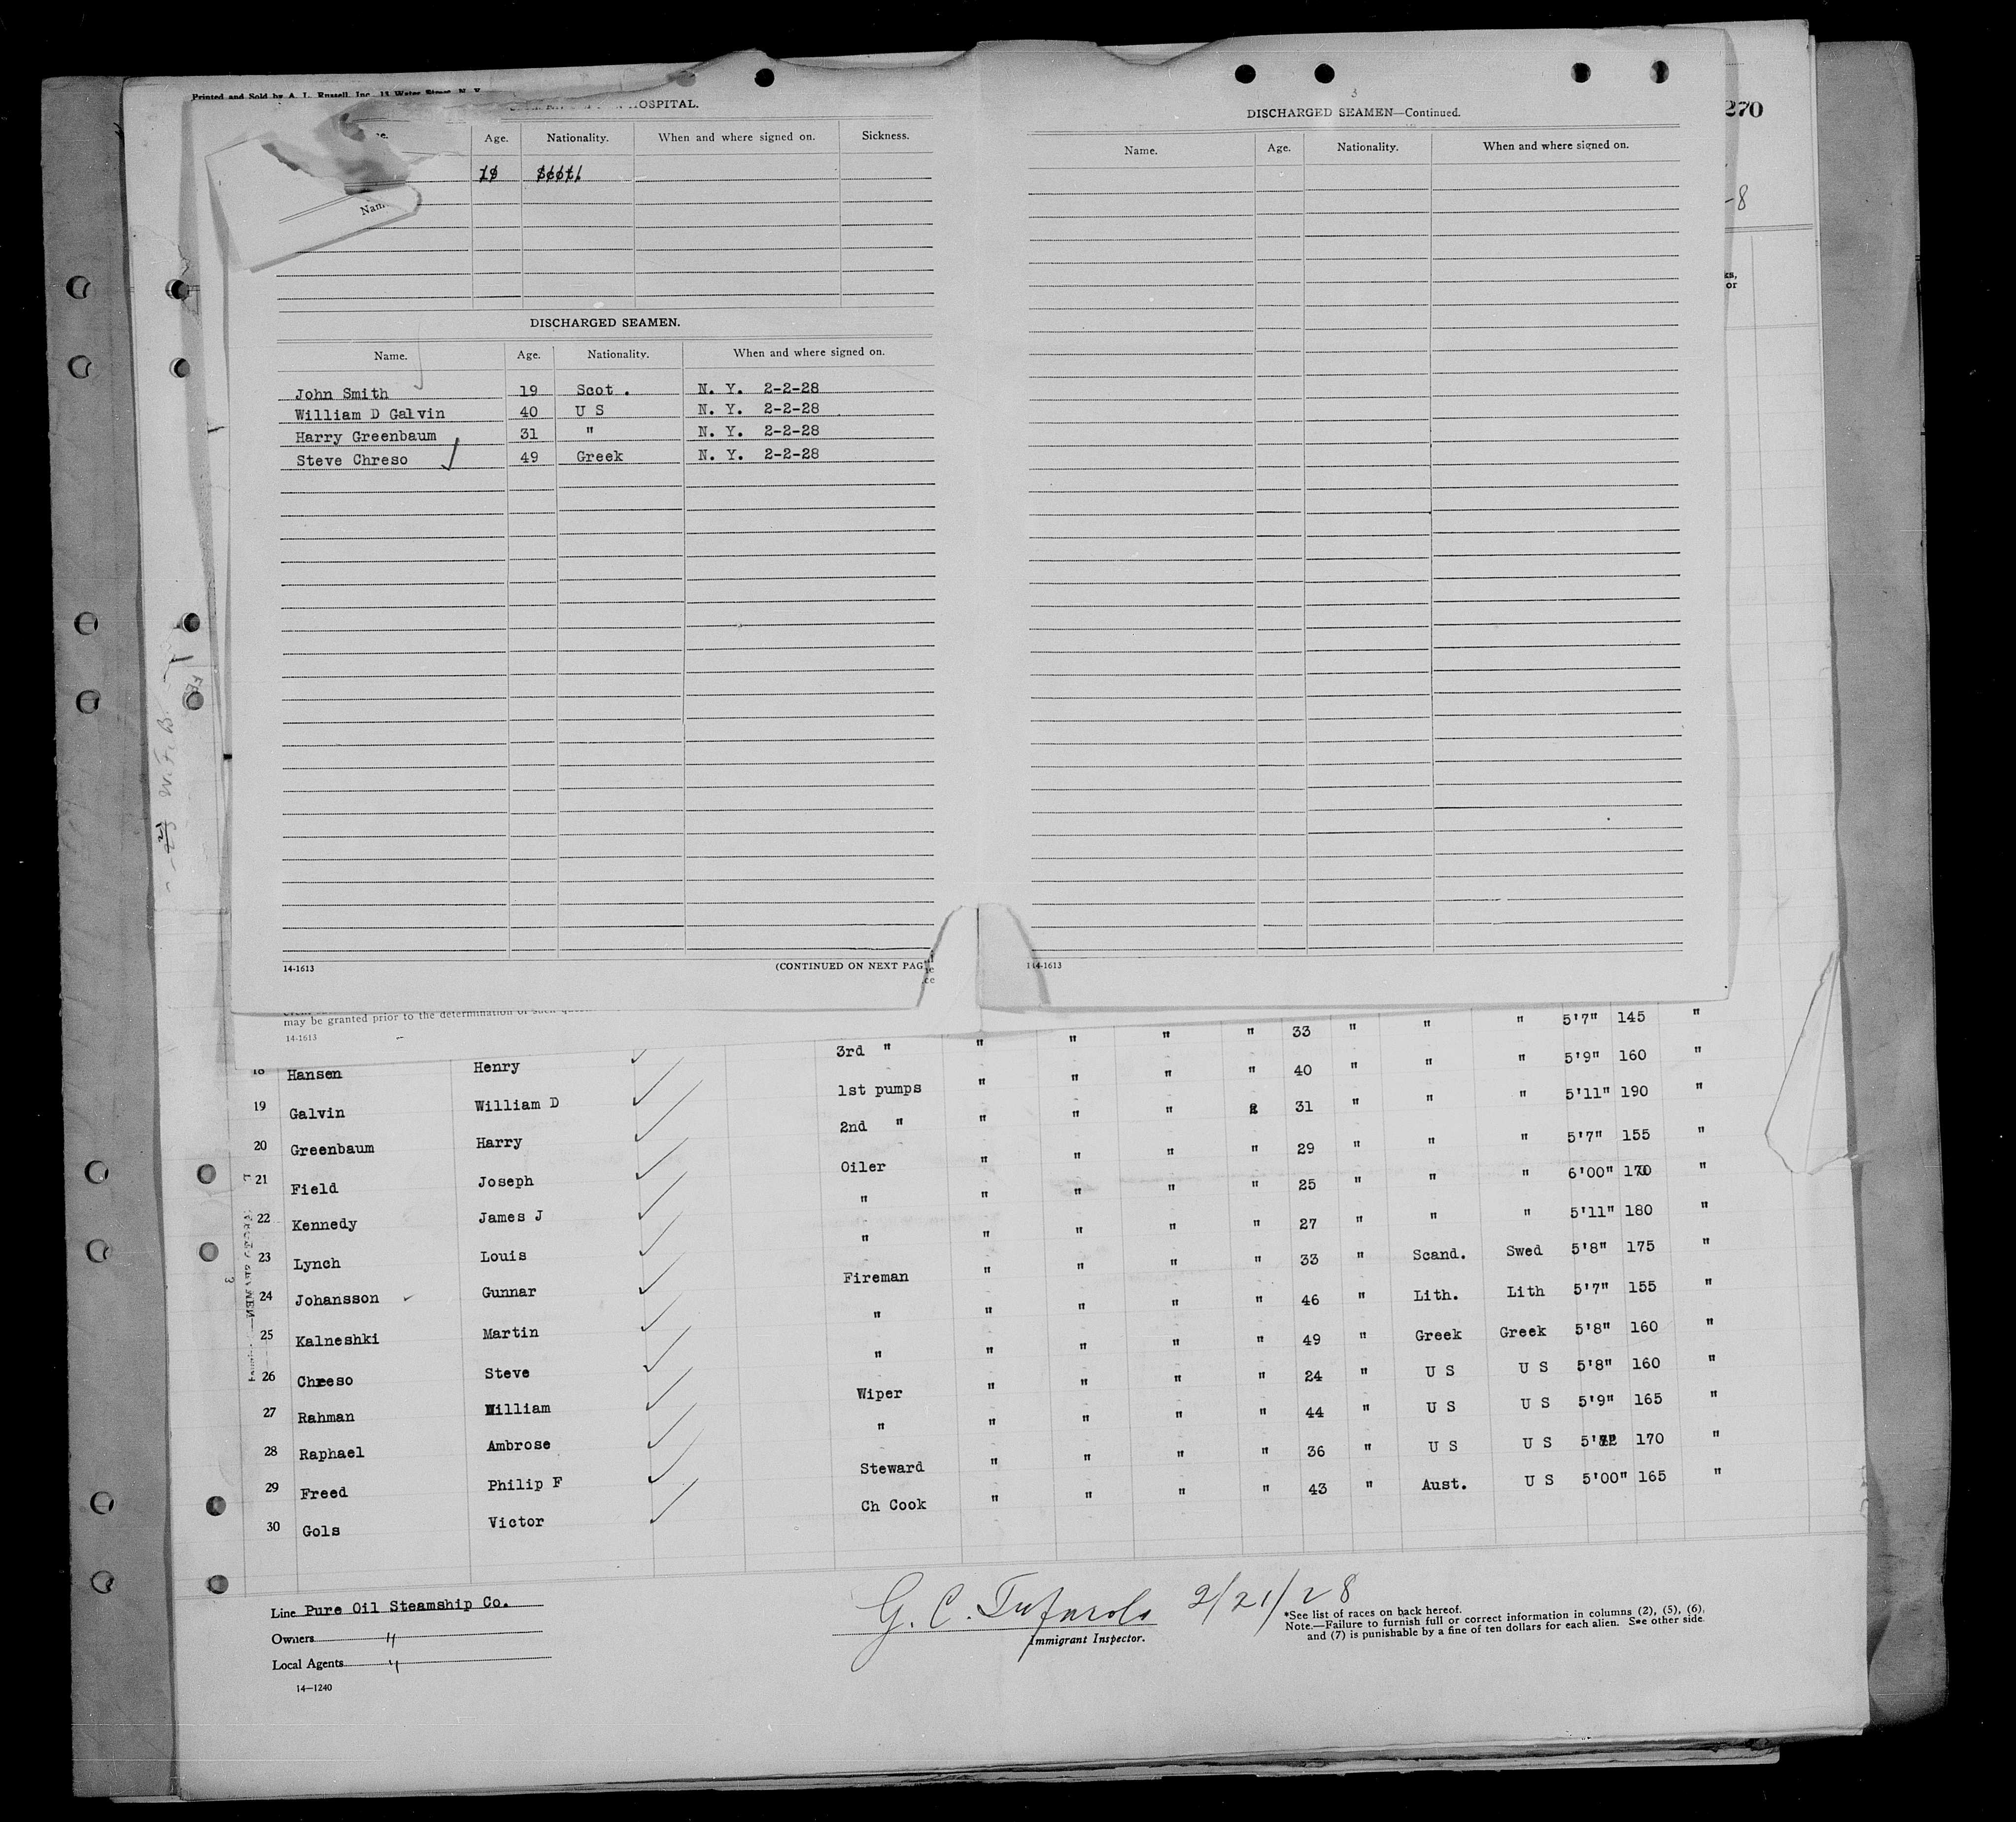 Printed and Sold by A. L. Russell, Inc., 13 Water Street, N. Y.
HOSPITAL.
Age. Nationality. When and where signed on. Sickness.
Nam
DISCHARGED SEAMEN.
Name. Age. Nationality. When and where signed on.
John Smith 19 Scot. N. Y. 2-2-28
William D Galvin 40 U S N. Y. 2-2-28
Harry Greenbaum 31 " N. Y. 2-2-28
Steve Chreso 49 Greek N. Y. 2-2-28
14-1613 (CONTINUED ON NEXT PAG
3
DISCHARGED SEAMEN—Continued.
Name. Age. Nationality. When and where signed on.
14-1613
270
-8
ks,
or
W. F. B.
may be granted prior to the determination of such
14-1613
18 Hansen Henry 3rd " " " " " 33 " " " 5'7" 145 "
19 Galvin William D 1st pumps " " " " 40 " " " 5'9" 160 "
20 Greenbaum Harry 2nd " " " " 31 " " " 5'11" 190 "
21 Field Joseph Oiler " " " " 29 " " " 5'7" 155 "
22 Kennedy James J " " " " " 25 " " " 6'00" 170 "
23 Lynch Louis " " " " " 27 " " " 5'11" 180 "
24 Johansson Gunnar Fireman " " " " 33 " Scand. Swed 5'8" 175 "
25 Kalneshki Martin " " " " " 46 " Lith. Lith 5'7" 155 "
26 Chreso Steve " " " " " 49 " Greek Greek 5'8" 160 "
27 Rahman William Wiper " " " " 24 " U S U S 5'8" 160 "
28 Raphael Ambrose " " " " " 44 " U S U S 5'9" 165 "
29 Freed Philip F Steward " " " " 36 " U S U S 170 "
30 Gols Victor Ch Cook " " " " 43 " Aust. U S 5'00" 165 "
Line Pure Oil Steamship Co.
Owners "
Local Agents "
14—1240
G. C. Tufarolo 2/21/28
Immigrant Inspector.
*See list of races on back hereof.
Note.—Failure to furnish full or correct information in columns (2), (5), (6),
and (7) is punishable by a fine of ten dollars for each alien. See other side.